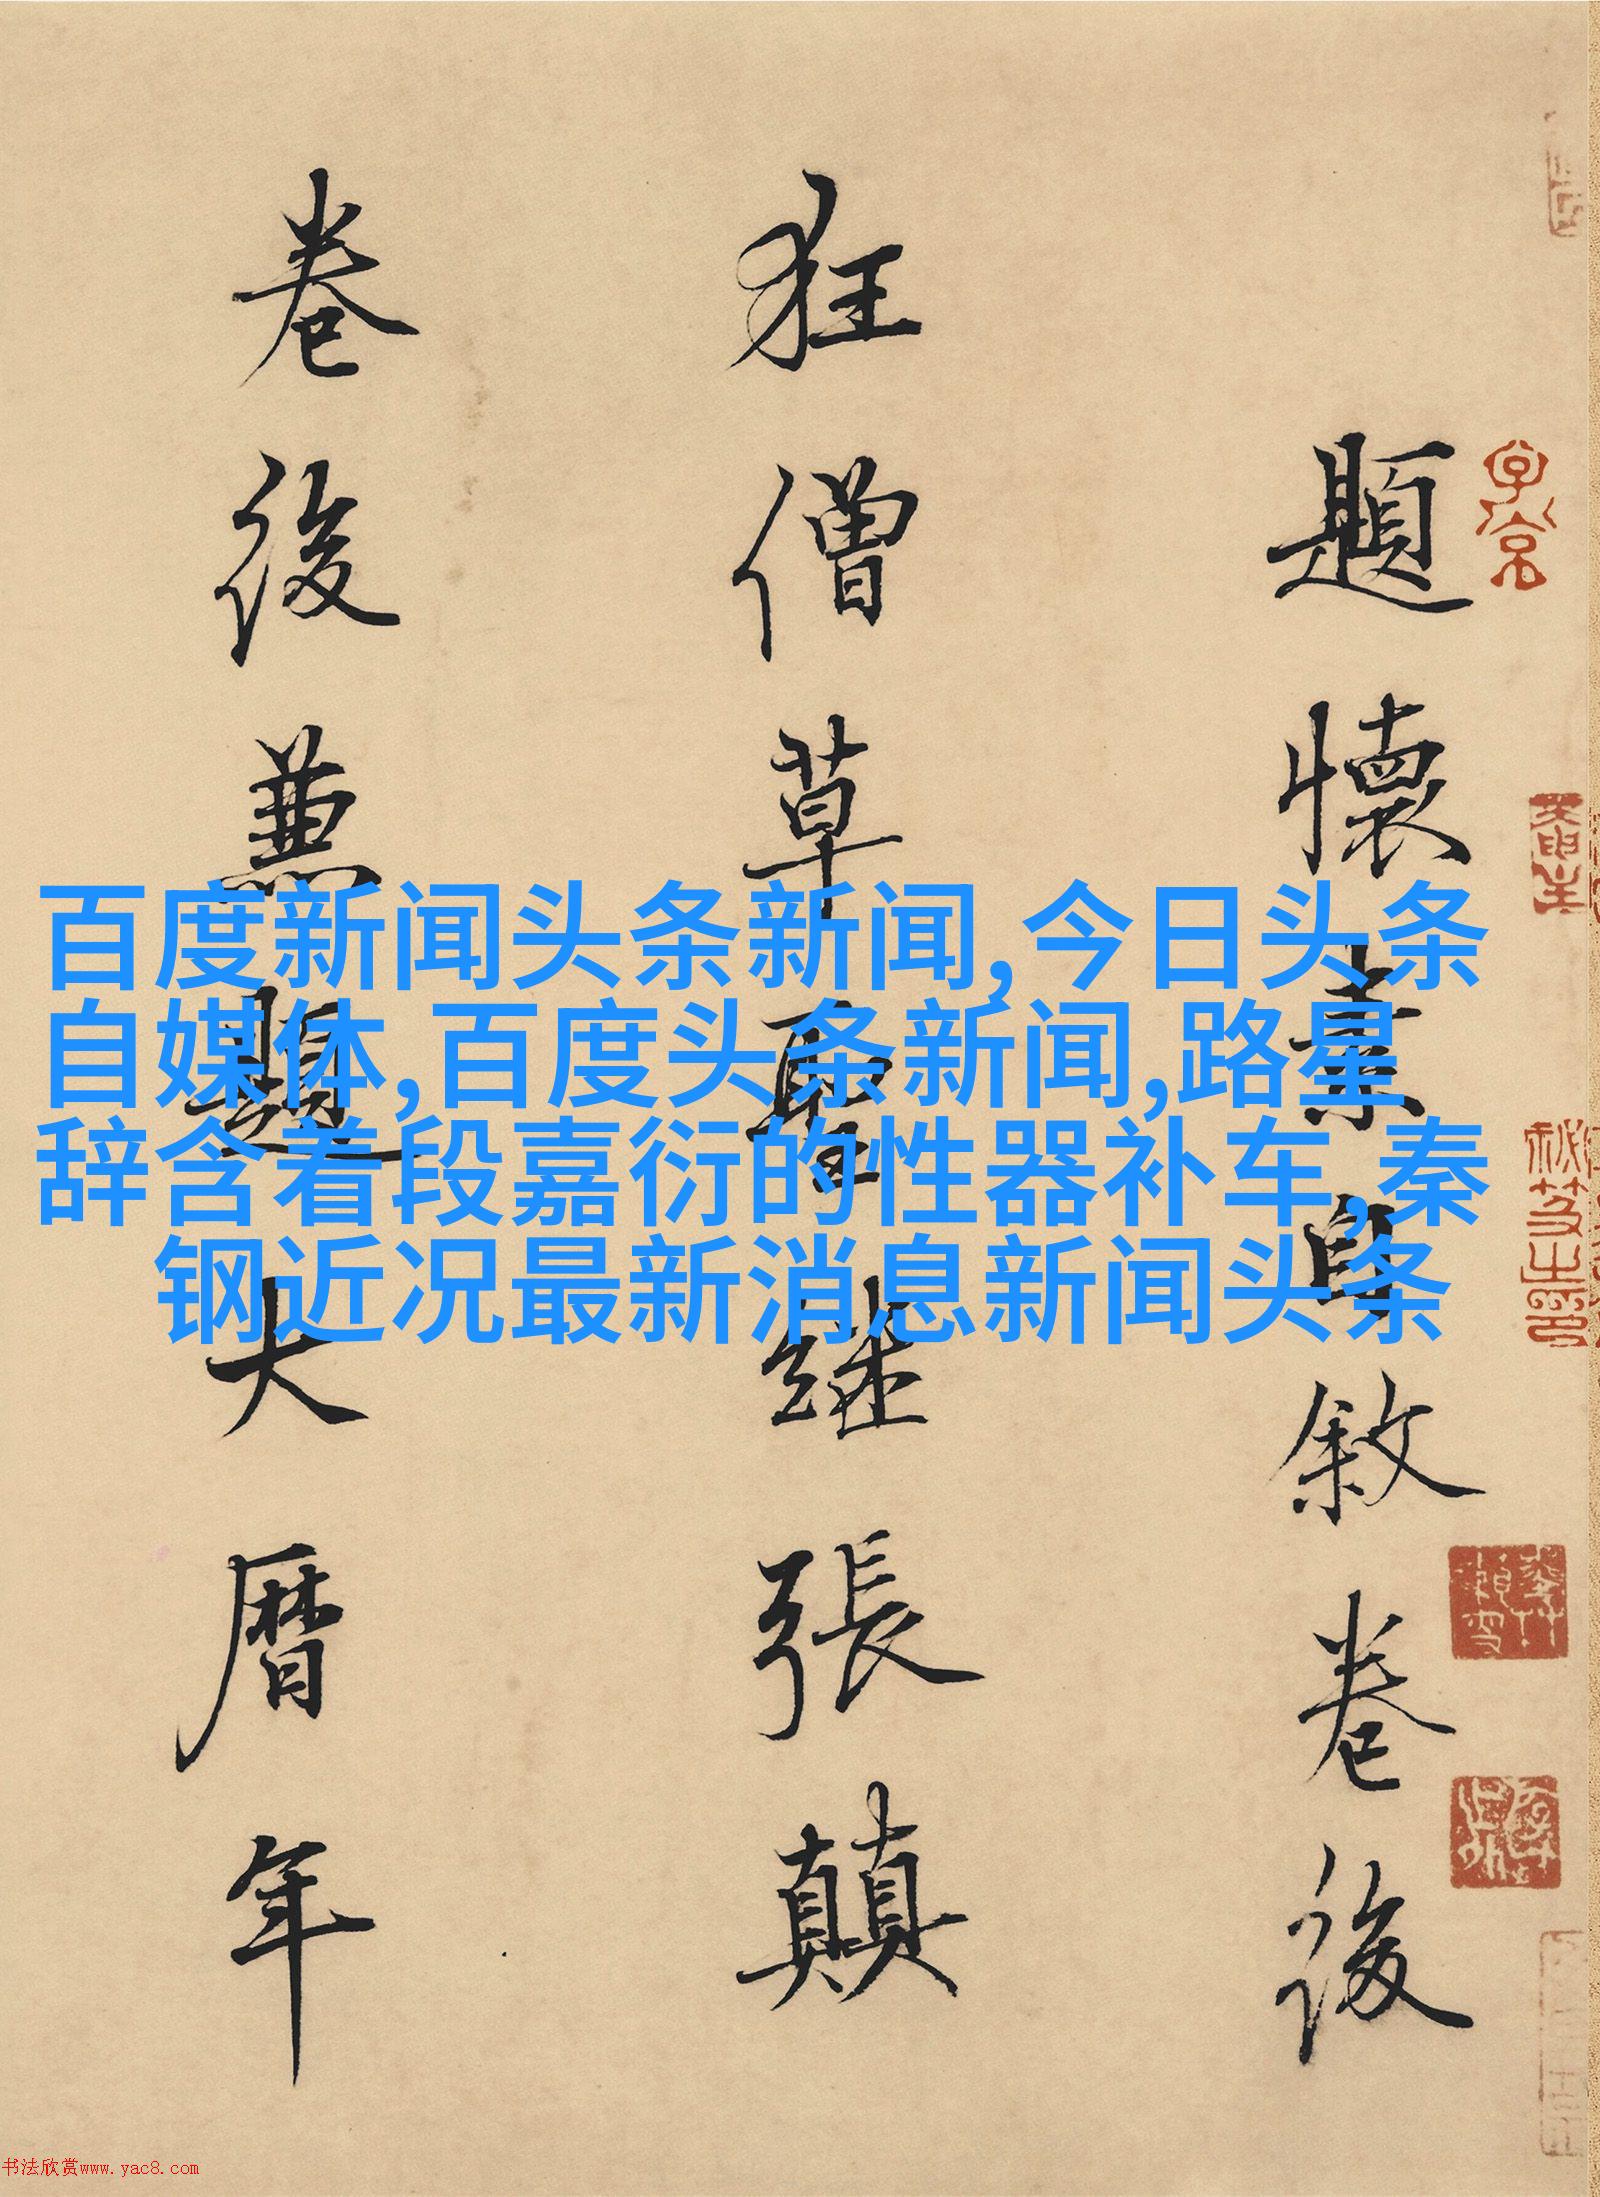 題懷素自敘卷後
狂僧草聖繼張顛
卷後兼題大曆年
百度新闻头条新闻,今日头条
自媒体,百度头条新闻,路星
辞含着段嘉衍的性器补车,秦
钢近况最新消息新闻头条
书法欣赏www.yac8.com